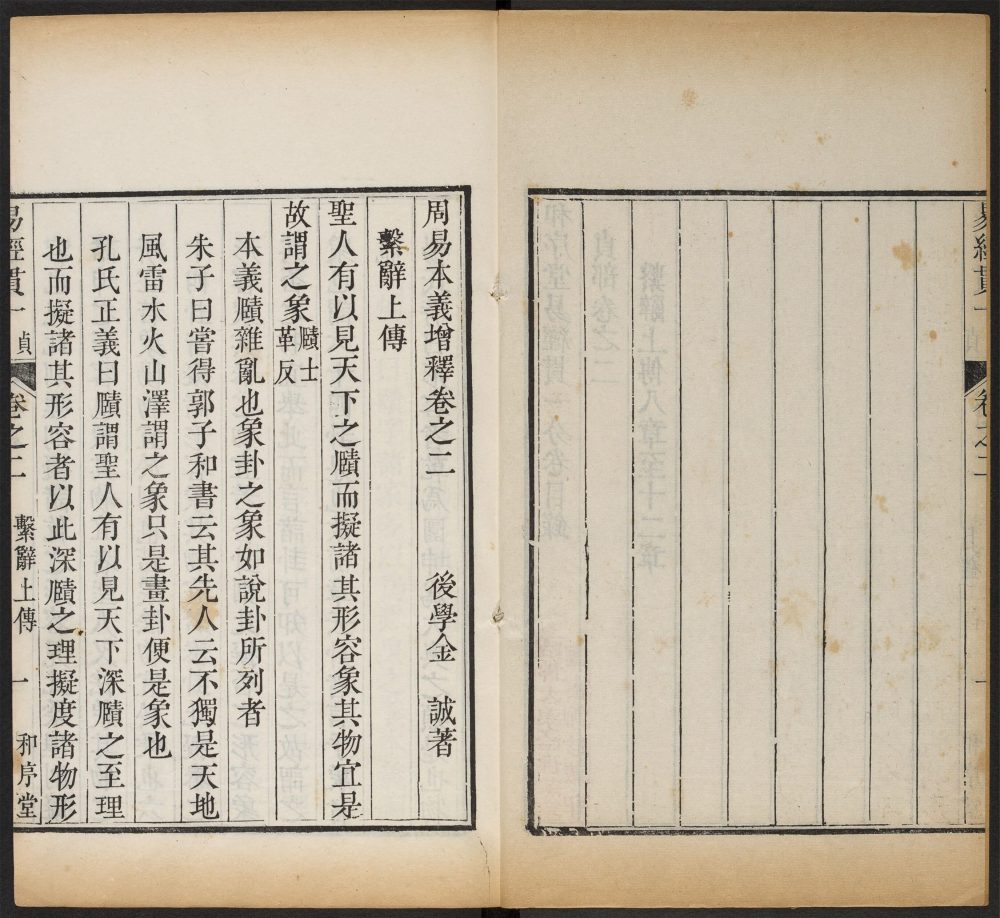 周易本義增釋卷之二 後學金 誠著
繫辭上傳
聖人有以見天下之賾而擬諸其形容象其物宜是
故謂之象賾士革反
本義賾雜亂也象卦之象如說卦所列者
朱子曰嘗得郭子和書云其先人云不獨是天地
風雷水火山澤謂之象只是畫卦便是象也
孔氏正義曰賾謂聖人有以見天下深賾之至理
也而擬諸其形容者以此深賾之理擬度諸物形
易經貫一 貞 卷之二 繫辭上傳 一 和序堂
易經貫一 貞 卷之二